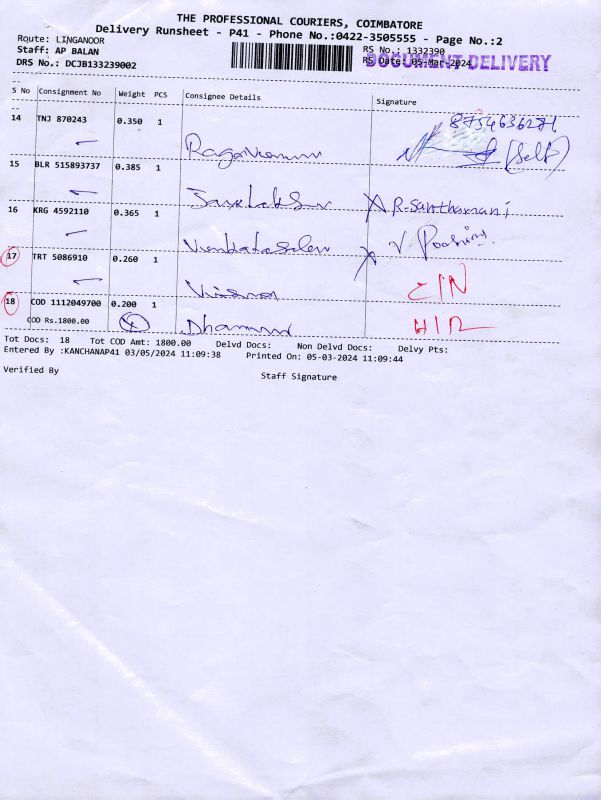 THE PROFESSIONAL COURIERS, COIMBATORE
Delivery Runsheet - P41 - Phone No.:0422-3505555 - Page No.:2
Route: LINGANOOR
RS No.: 1332390
Staff: AP BALAN
RS Date: 05-Mar-2024
DOCUMENT DELIVERY
DRS No.: DCJB133239002
S No Consignment No Weight PCS Consignee Details Signature
14 TNJ 870243 0.350 1
8754636271
(Self)
15 BLR 515893737 0.385 1
R. Santhamani
16 KRG 4592110 0.365 1
Venkatasalam
17 TRT 5086910 0.260 1
18 COD 1112049700 0.200 1
COD Rs.1800.00
Tot Docs: 18 Tot COD Amt: 1800.00 Delvd Docs: Non Delvd Docs: Delvy Pts:
Entered By :KANCHANAP41 03/05/2024 11:09:38 Printed On: 05-03-2024 11:09:44
Verified By Staff Signature